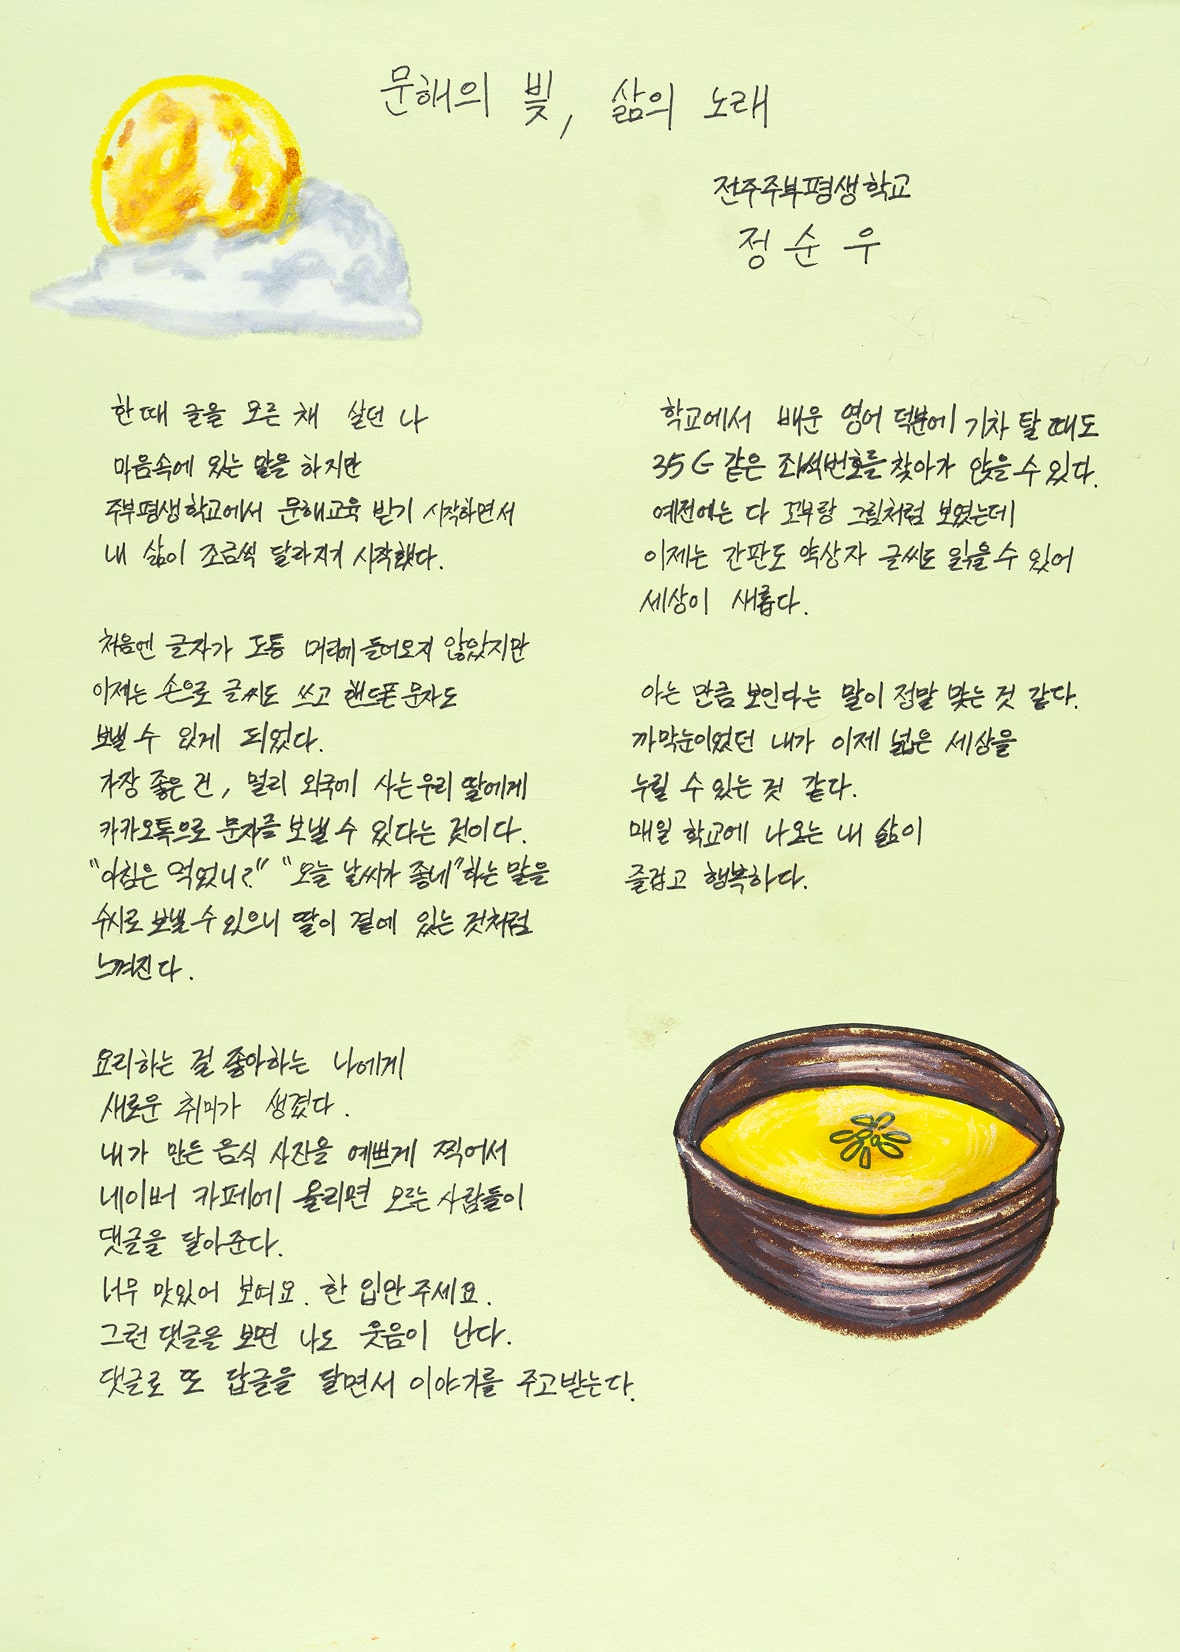 문해의 빛, 삶의 노래
전주주부평생학교
정순우
한때 글을 모른 채 살던 나
마음속에 있는 말을 하지만
주부평생학교에서 문해교육 받기 시작하면서
내 삶이 조금씩 달라지기 시작했다.
처음엔 글자가 도통 머리에 들어오지 않았지만
이제는 손으로 글씨도 쓰고 핸드폰 문자도
보낼 수 있게 되었다.
가장 좋은 건, 멀리 외국에 사는 우리 딸에게
카카오톡으로 문자를 보낼 수 있다는 것이다.
"아침은 먹었니?" "오늘 날씨가 좋네" 하는 말을
수시로 보낼 수 있으니 딸이 곁에 있는 것처럼
느껴진다.
요리하는 걸 좋아하는 나에게
새로운 취미가 생겼다.
내가 만든 음식 사진을 예쁘게 찍어서
네이버 카페에 올리면 모르는 사람들이
댓글을 달아준다.
너무 맛있어 보여요. 한 입만 주세요.
그런 댓글을 보면 나도 웃음이 난다.
댓글로 또 답글을 달면서 이야기를 주고받는다.
학교에서 배운 영어 덕분에 기차 탈 때도
35G 같은 좌석번호를 찾아가 앉을 수 있다.
예전에는 다 꼬부랑 그림처럼 보였는데
이제는 간판도 약상자 글씨도 읽을 수 있어
세상이 새롭다.
아는 만큼 보인다는 말이 정말 맞는 것 같다.
까막눈이었던 내가 이제 넓은 세상을
누릴 수 있는 것 같다.
매일 학교에 나오는 내 삶이
즐겁고 행복하다.